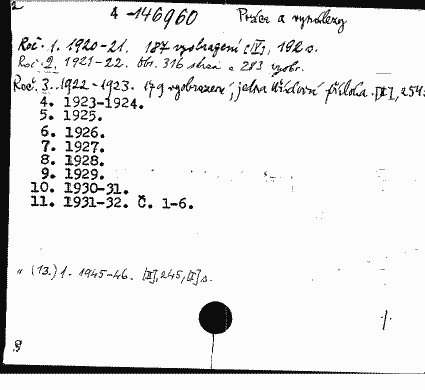 2
4 -146960 Práce a vynálezy
Roč. 1. 1920-21. 187 vyobrazení [IV], 192 s.
Roč. 2. 1921-22. Str. 316 stran a 283 vyobr.
Roč. 3. 1922-1923. 179 vyobrazení, jedna křídová příloha. [II], 254
4. 1923-1924.
5. 1925.
6. 1926.
7. 1927.
8. 1928.
9. 1929.
10. 1930-31.
11. 1931-32. Č. 1-6.
" (13.) 1. 1945-46. [II], 245, [I] s.